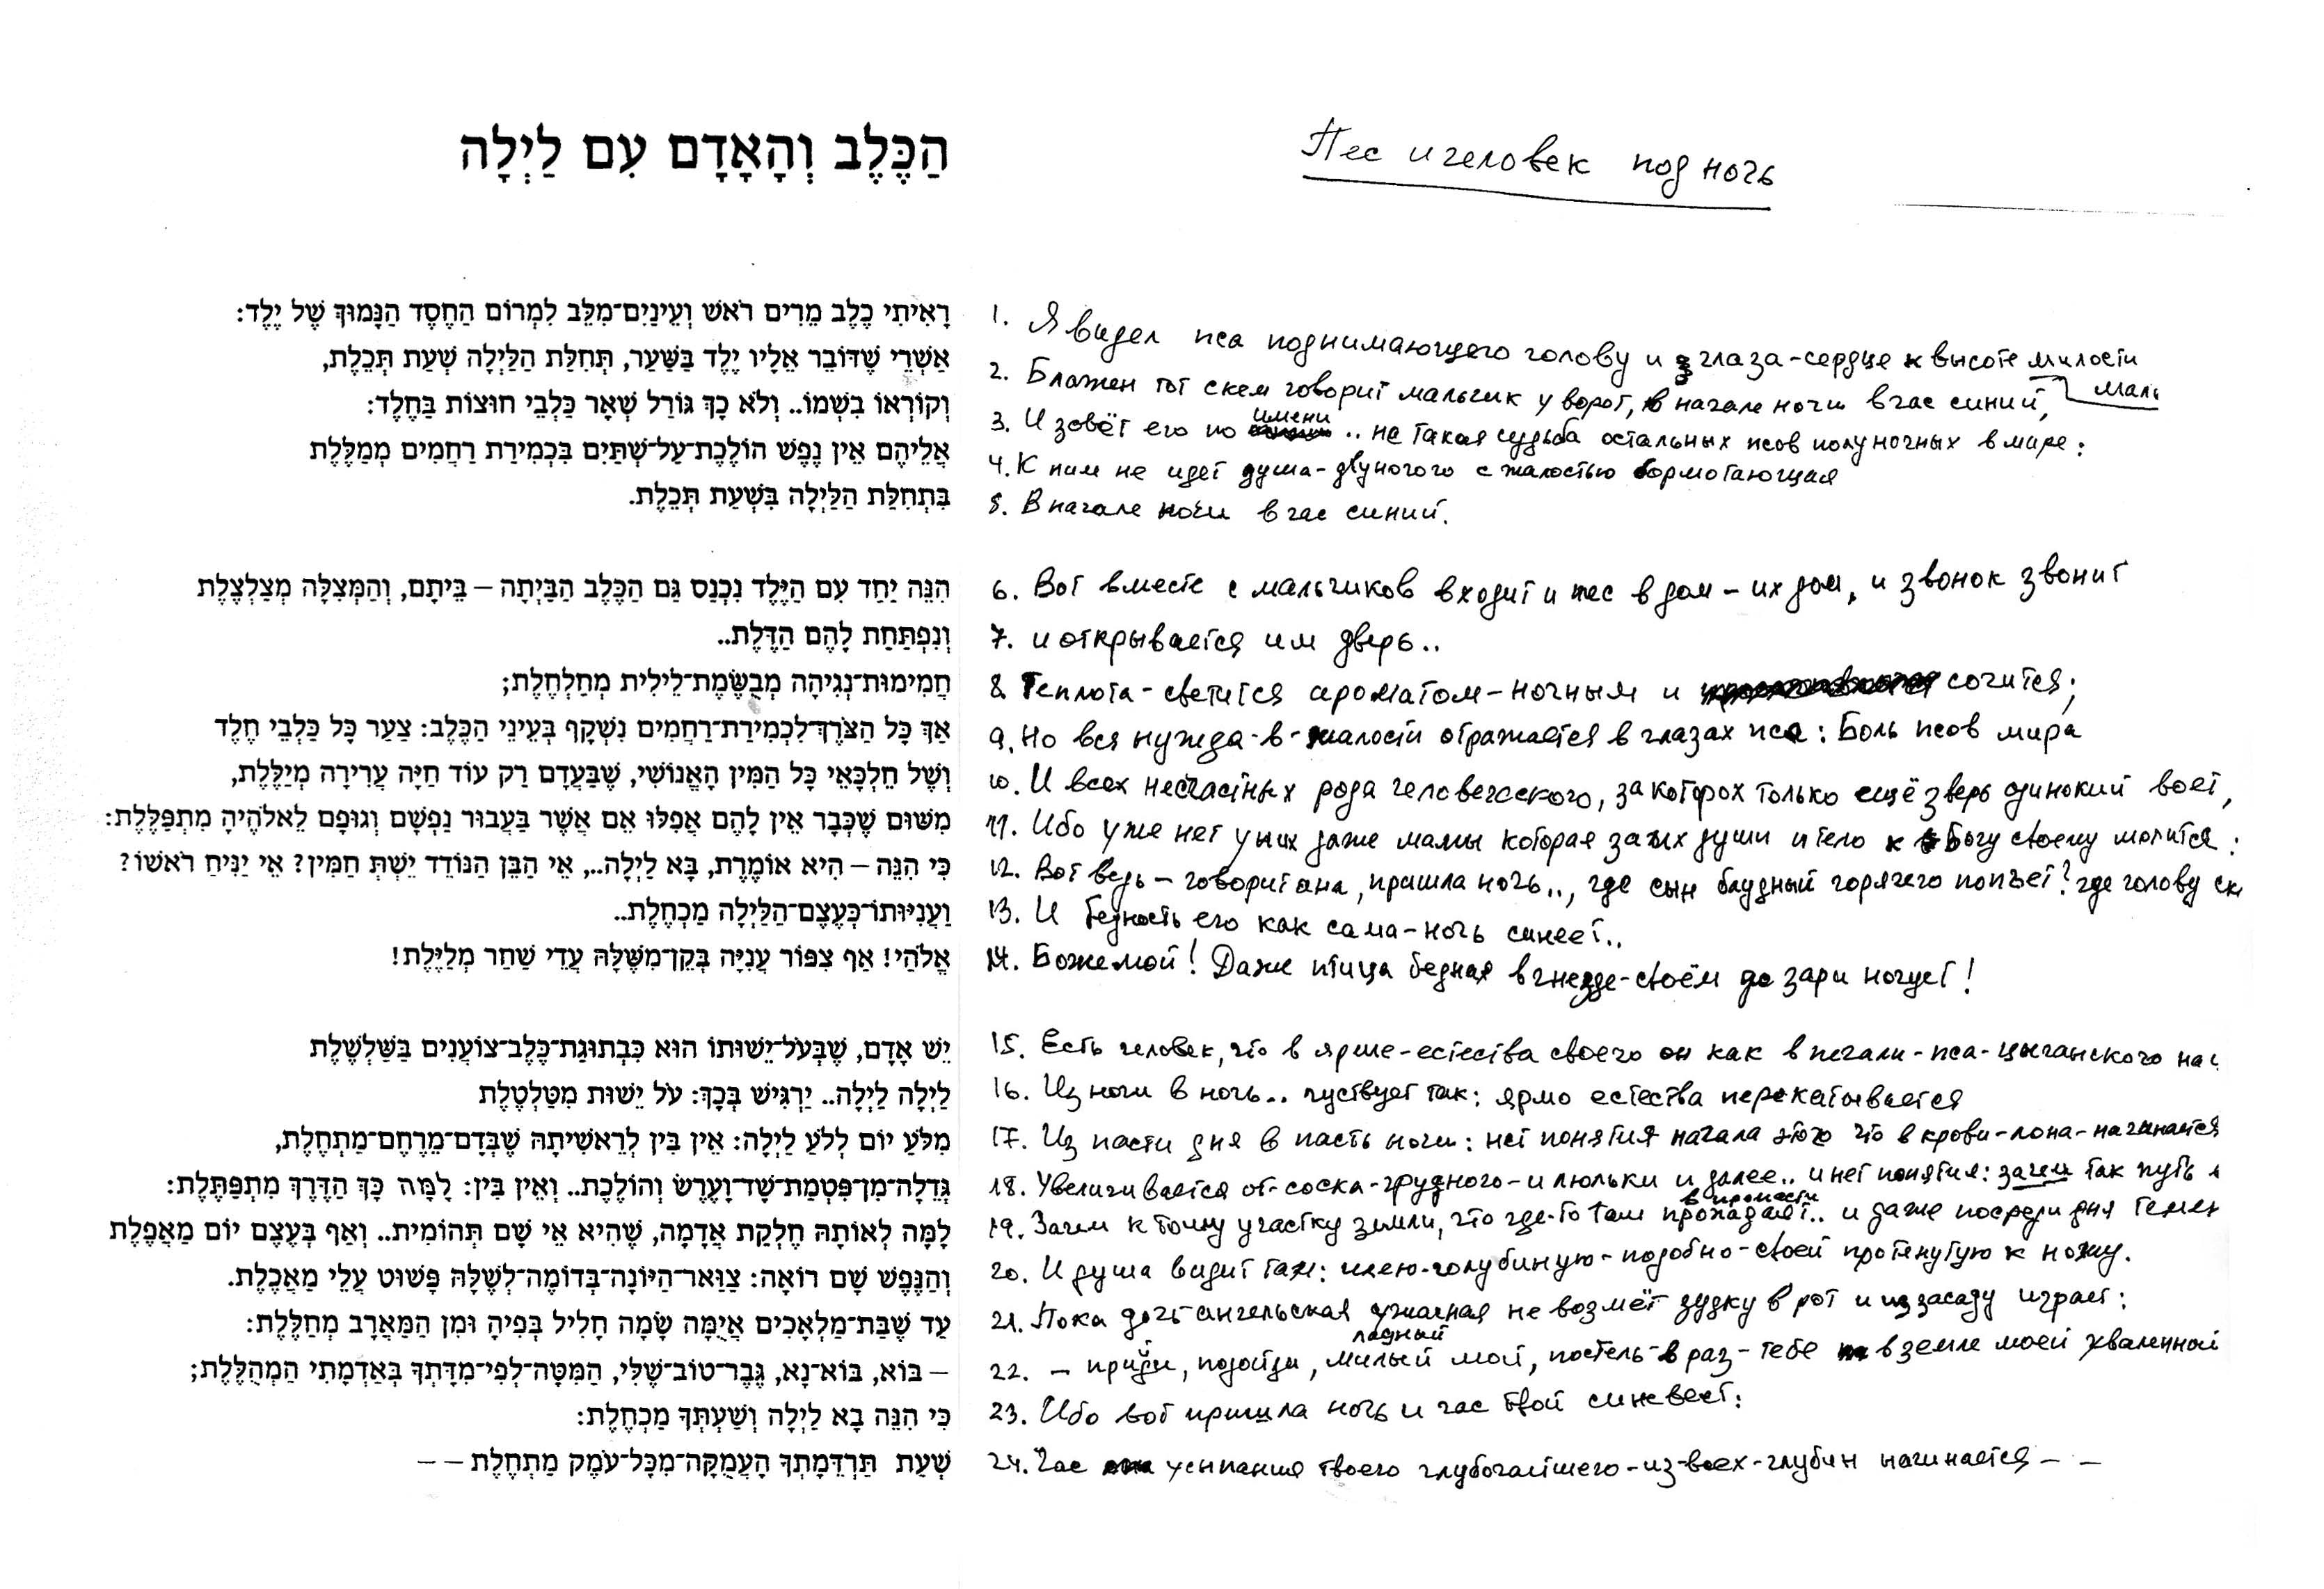 הַכֶּלֶב וְהָאָדָם עִם לַיְלָה
רָאִיתִי כֶלֶב מֵרִים רֹאשׁ וְעֵינַיִם־מִלֵּב לִמְרוֹם הַחֶסֶד הַנָּמוּךְ שֶׁל יֶלֶד:
אַשְׁרֵי שֶׁדּוֹבֵר אֵלָיו יֶלֶד בַּשַּׁעַר, תְּחִלַּת הַלַּיְלָה שְׁעַת תְּכֵלֶת,
וְקוֹרְאוֹ בִשְׁמוֹ.. וְלֹא כָךְ גּוֹרַל שְׁאָר כַּלְבֵי חוּצוֹת בַּחֶלֶד:
אֲלֵיהֶם אֵין נֶפֶשׁ הוֹלֶכֶת־עַל־שְׁתַּיִם בִּכְמִירַת רַחֲמִים מְמַלֶּלֶת
בִּתְחִלַּת הַלַּיְלָה בִּשְׁעַת תְּכֵלֶת.
הִנֵּה יַחַד עִם הַיֶּלֶד נִכְנַס גַּם הַכֶּלֶב הַבַּיְתָה – בֵּיתָם, וְהַמְּצִלָּה מְצַלְצֶלֶת
וְנִפְתַּחַת לָהֶם הַדֶּלֶת..
חֲמִימוּת־נְגִיהָה מְבֻשֶּׂמֶת־לֵילִית מְחַלְחֶלֶת;
אַךְ כָּל הַצֹּרֶךְ־לִכְמִירַת־רַחֲמִים נִשְׁקָף בְּעֵינֵי הַכֶּלֶב: צַעַר כָּל כַּלְבֵי חֶלֶד
וְשֶׁל חֵלְכָּאֵי כָּל הַמִּין הָאֱנוֹשִׁי, שֶׁבַּעֲדָם רַק עוֹד חַיָּה עֲרִירָה מְיַלֶּלֶת,
מִשּׁוּם שֶׁכְּבָר אֵין לָהֶם אֲפִלּוּ אֵם אֲשֶׁר בַּעֲבוּר נַפְשָׁם וְגוּפָם לֵאלֹהֶיהָ מִתְפַּלֶּלֶת:
כִּי הִנֵּה – הִיא אוֹמֶרֶת, בָּא לַיְלָה.., אֵי הַבֵּן הַנּוֹדֵד יֵשְׁתְּ חַמִּין? אֵי יַנִּיחַ רֹאשׁוֹ?
וַעֲנִיּוּתוֹ־כְּעֶצֶם־הַלַּיְלָה מַכְחֶלֶת..
אֱלֹהַי! אַף צִפּוֹר עֲנִיָּה בְּקֵן־מִשֶּׁלָּהּ עֲדֵי שַׁחַר מְלַיֶּלֶת!
יֵשׁ אָדָם, שֶׁבְּעֹל־יֵשׁוּתוֹ הוּא כִּבְתוּגַת־כֶּלֶב־צוֹעֲנִים בַּשַּׁלְשֶׁלֶת
לַיְלָה לַיְלָה.. יַרְגִּישׁ בְּכָךְ: עֹל יֵשׁוּת מִטַּלְטֶלֶת
מִלֹּעַ יוֹם לְלֹעַ לַיְלָה: אֵין בִּין לְרֵאשִׁיתָהּ שֶׁבְּדָם־מֵרֶחֶם־מַתְחֶלֶת,
גְּדֵלָה־מִן־פִּטְמַת־שָׁד־וָעֶרֶשׂ וְהוֹלֶכֶת.. וְאֵין בִּין: לָמָּה כָּךְ הַדֶּרֶךְ מִתְפַּתֶּלֶת:
לָמָּה לְאוֹתָהּ חֶלְקַת אֲדָמָה, שֶׁהִיא אֵי שָׁם תְּהוֹמִית.. וְאַף בְּעֶצֶם יוֹם מַאֲפֶלֶת
וְהַנֶּפֶשׁ שָׁם רוֹאָה: צַוַּאר־הַיּוֹנָה־בְּדוֹמֶה־לְשֶׁלָּהּ פָּשׁוּט עֲלֵי מַאֲכֶלֶת.
עַד שֶׁבַּת־מַלְאָכִים אֲיֻמָּה שָׂמָה חָלִיל בְּפִיהָ וּמִן הַמַּאֲרָב מְחַלֶּלֶת:
– בּוֹא, בּוֹא־נָא, גֶּבֶר־טוֹב־שֶׁלִּי, הַמִּטָּה־לְפִי־מִדָּתְךָ בְּאַדְמָתִי הַמְהֻלֶּלֶת;
כִּי הִנֵּה בָא לַיְלָה וְשַׁעְתְּךָ מַכְחֶלֶת:
שְׁעַת תַּרְדֵּמָתְךָ הָעֲמֻקָּה־מִכָּל־עֹמֶק מַתְחֶלֶת – –
Пес и человек под ночь
1. Я видел пса поднимающего голову и глаза-сердце к высоте милости
маль
2. Блажен тот с кем говорит мальчик у ворот, в начале ночи в час синий,
3. И зовёт его по имени .. не такая судьба остальных псов полуночных в мире:
4. К ним не идет душа-двуногого с жалостью бормотающая
5. В начале ночи в час синий.
6. Вот вместе с мальчиков входит и пес в дом – их дом, и звонок звонит
7. и открывается им дверь..
8. Теплота-светится ароматом-ночным и сочится;
9. Но вся нужда-в-жалости отражается в глазах пса: Боль псов мира
10. И всех несчастных рода человеческого, за которых только ещё зверь одинокий воет,
11. Ибо уже нет у них даже мамы которая за их души и тело к Богу своему молится:
12. Вот ведь – говорит она, пришла ночь.., где сын блудный горячего попьет? где голову ск
13. И бедность его как сама-ночь синеет..
14. Боже мой! Даже птица бедная в гнезде-своём до зари ночует!
15. Есть человек, что в ярме-естества своего он как в печали-пса-цыганского на
16. Из ночи в ночь.. чуствует так: ярмо естества перекатывается
17. Из пасти дня в пасть ночи: нет понятия начала этого что в крови-лона-начинается
18. Увеличивается от-соска-грудного-и люльки и далее.. и нет понятия: зачем так путь
в пропасти
19. Зачем к тому участку земли, что где-то там пропадает.. и даже посреди дня темен
20. И душа видит там: шею-голубиную-подобно-своей протянутую к ножу.
21. Пока дочь ангельская ужасная не возмёт дудку в рот и из засаду играет:
ладный
22. – приди, подойди, милый мой, постель-в раз-тебе в земле моей хваленной
23. Ибо вот пришла ночь и час твой синевеет:
24. Час усыпания твоего глубочайшего-из-всех-глубин начинается – –